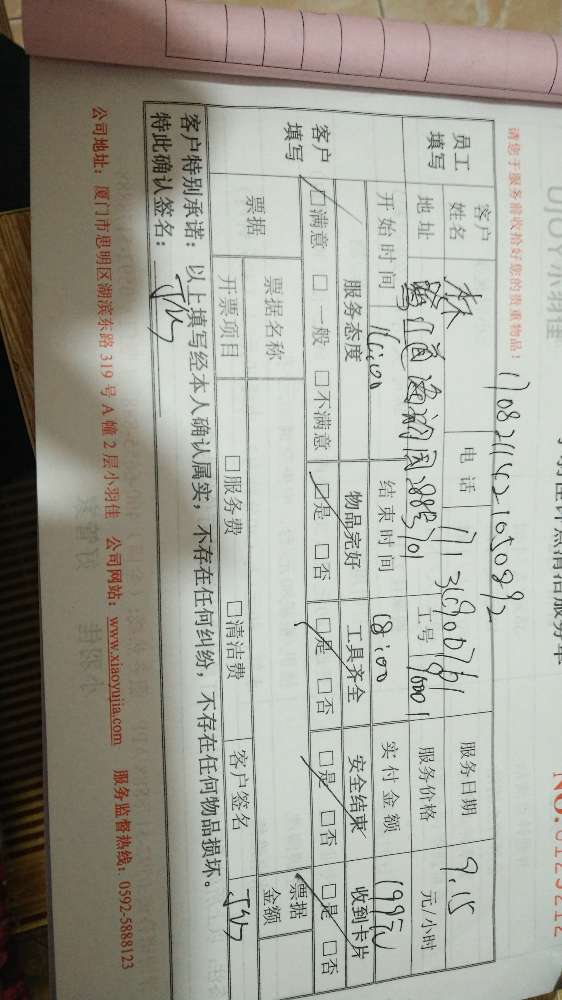 UJOY小羽佳
计点清洁服务单
NO.0125212
请您于服务前收拾好您的贵重物品！
员工填写
客户姓名 林
电话
服务日期 9.15
地址
工号
服务价格 元/小时
开始时间 16:00
结束时间 18:00
实付金额
客户填写
服务态度 物品完好 工具齐全 安全结束 收到卡片
□满意 □一般 □不满意 □是 □否 □是 □否 □是 □否 □是 □否
票据 票据名称 票据金额
开票项目 □服务费 □清洁费 客户签名
客户特别承诺：以上填写经本人确认属实，不存在任何纠纷，不存在任何物品损坏。
特此确认签名：
公司地址：厦门市思明区湖滨东路 319 号 A 幢 2 层小羽佳 公司网站：www.xiaoyujia.com 服务监督热线：0592-5888123